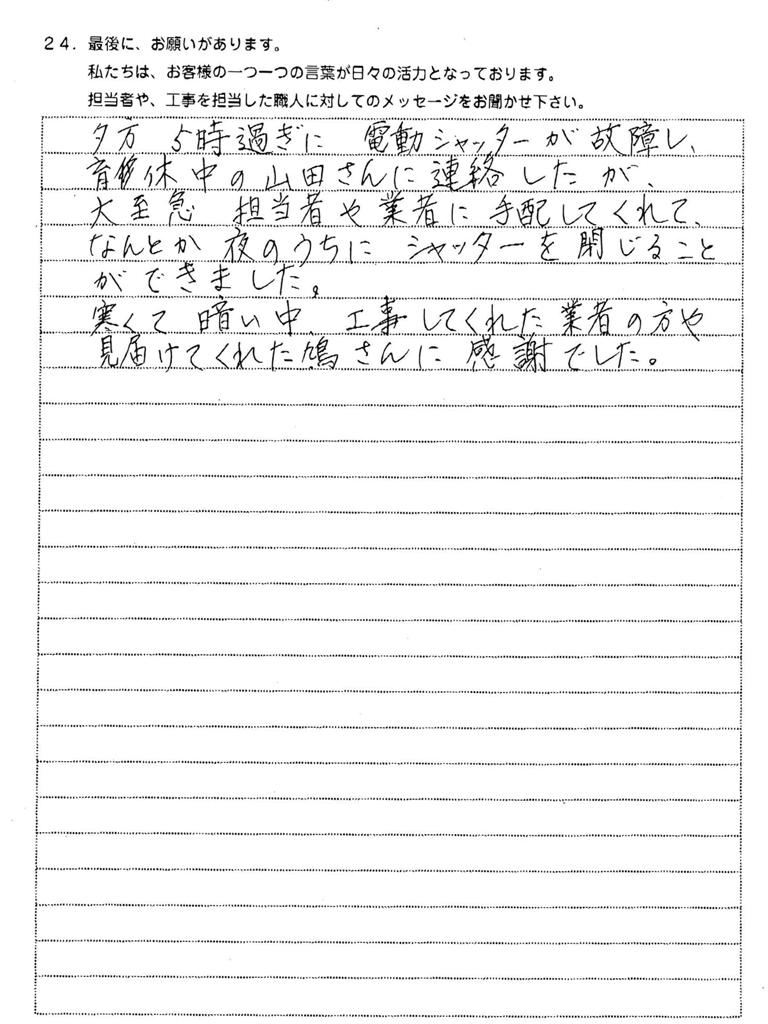 24．最後に、お願いがあります。
私たちは、お客様の一つ一つの言葉が日々の活力となっております。
担当者や、工事を担当した職人に対してのメッセージをお聞かせ下さい。
夕方 5時過ぎに 電動シャッターが故障し、
育休中の山田さんに連絡したが、
大至急 担当者や業者に手配してくれて、
なんとか夜のうちに シャッターを閉じること
ができました。
寒くて暗い中、工事してくれた業者の方や
見届けてくれた鳩さんに感謝でした。